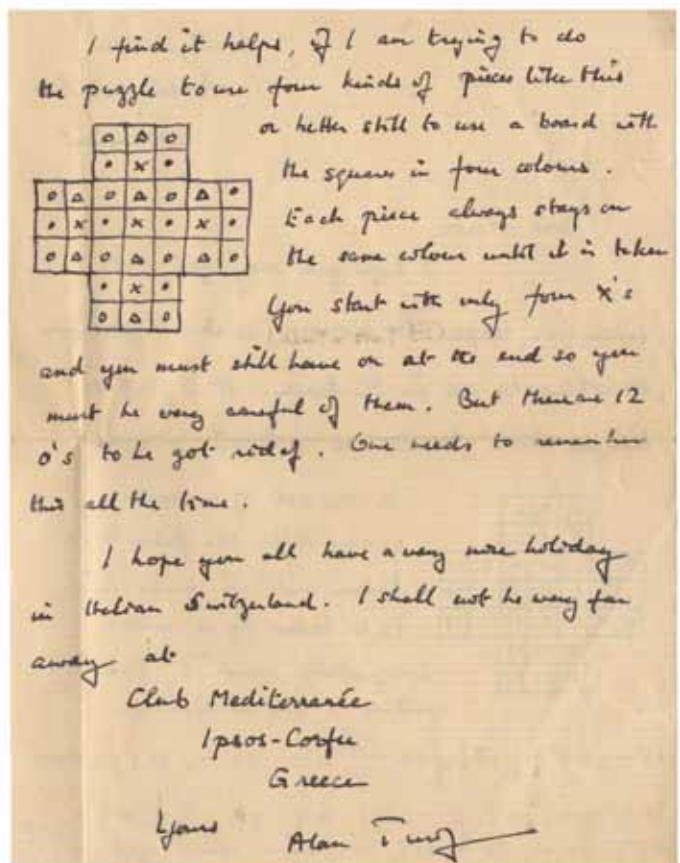 I find it helps, if I am trying to do
the puzzle to use four kinds of pieces like this
o Δ o
• x •
o Δ o Δ o Δ o
• x • x • x •
o Δ o Δ o Δ o
• x •
o Δ o
or better still to use a board with
the squares in four colours.
Each piece always stays on
the same colour until it is taken
You start with only four x's
and you must still have on at the end so you
must be very careful of them. But there are 12
o's to be got rid of. One needs to remember
this all the time.
I hope you all have a very nice holiday
in Italian Switzerland. I shall not be very far
away at
Club Mediterranée
Ipsos-Corfu
Greece
Yours
Alan Turing